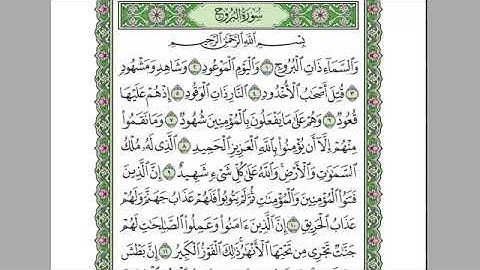 سُورَةُ الْبُرُوجِ
بِسْمِ اللَّهِ الرَّحْمَٰنِ الرَّحِيمِ
وَالسَّمَاءِ ذَاتِ الْبُرُوجِ ١ وَالْيَوْمِ الْمَوْعُودِ ٢ وَشَاهِدٍ وَمَشْهُودٍ
٣ قُتِلَ أَصْحَابُ الْأُخْدُودِ ٤ النَّارِ ذَاتِ الْوَقُودِ ٥ إِذْ هُمْ عَلَيْهَا
قُعُودٌ ٦ وَهُمْ عَلَىٰ مَا يَفْعَلُونَ بِالْمُؤْمِنِينَ شُهُودٌ ٧ وَمَا نَقَمُوا
مِنْهُمْ إِلَّا أَن يُؤْمِنُوا بِاللَّهِ الْعَزِيزِ الْحَمِيدِ ٨ الَّذِي لَهُ مُلْكُ
السَّمَاوَاتِ وَالْأَرْضِ وَاللَّهُ عَلَىٰ كُلِّ شَيْءٍ شَهِيدٌ ٩ إِنَّ الَّذِينَ
فَتَنُوا الْمُؤْمِنِينَ وَالْمُؤْمِنَاتِ ثُمَّ لَمْ يَتُوبُوا فَلَهُمْ عَذَابُ جَهَنَّمَ وَلَهُمْ
عَذَابُ الْحَرِيقِ ١٠ إِنَّ الَّذِينَ ءَامَنُوا وَعَمِلُوا الصَّالِحَاتِ لَهُمْ
جَنَّاتٌ تَجْرِي مِن تَحْتِهَا الْأَنْهَارُ ذَٰلِكَ الْفَوْزُ الْكَبِيرُ ١١ إِنَّ بَطْشَ